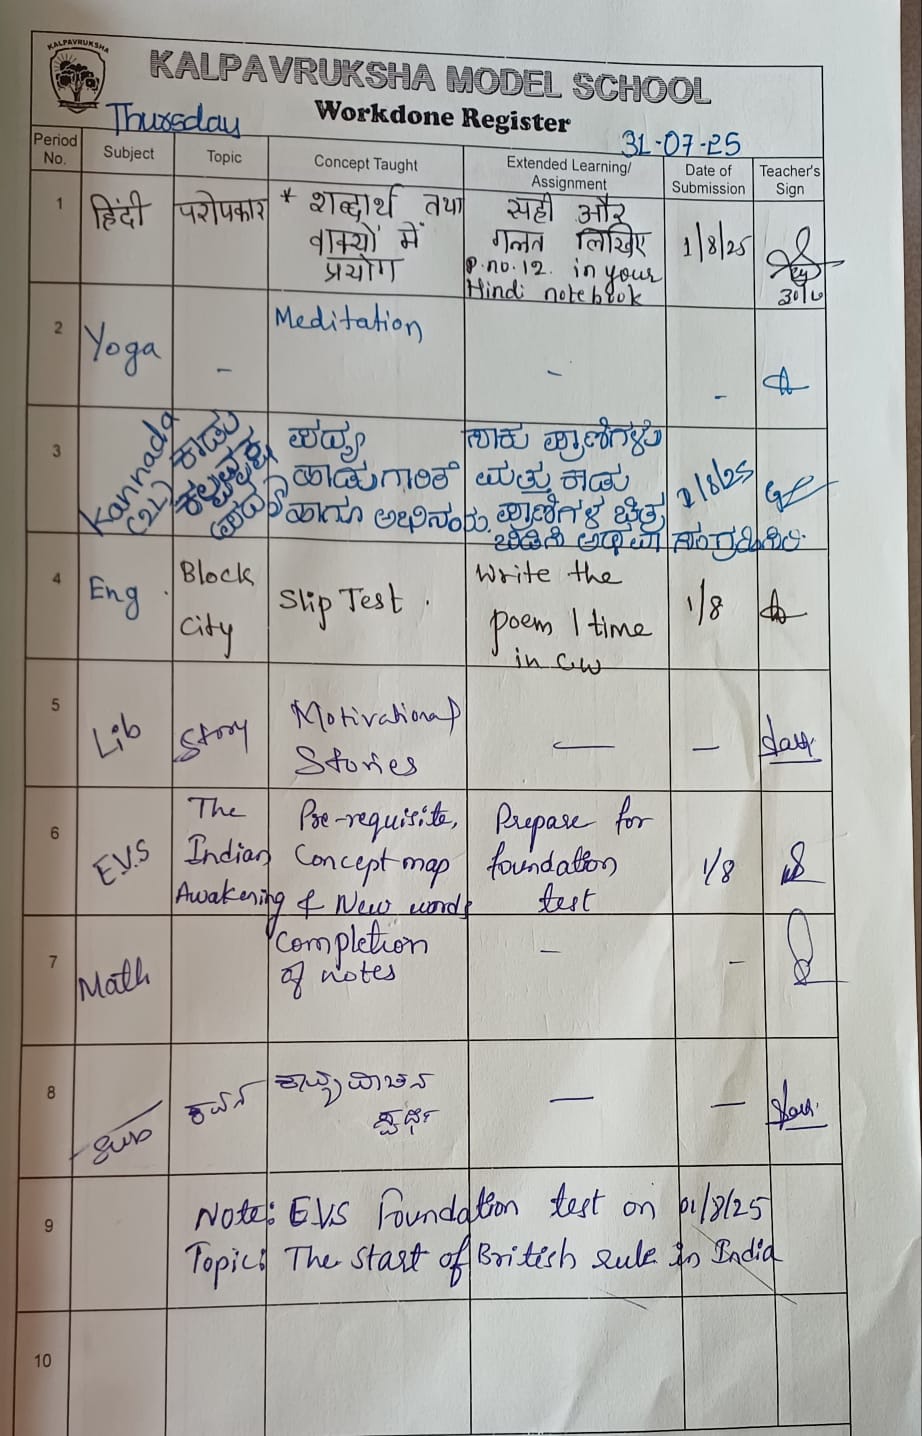 KALPAVRUKSHA
KALPAVRUKSHA MODEL SCHOOL
Workdone Register
Thursday
31-07-25
Period No.
Subject
Topic
Concept Taught
Extended Learning/
Assignment
Date of
Submission
Teacher's
Sign
1
हिंदी
परोपकार
* शब्दार्थ तथा
वाक्यों में
प्रयोग
सही और
गलत लिखिए
P.no.12. in your
Hindi notebook
1/8/25
2
Yoga
-
Meditation
-
-
3
Kannada
(2L)
ಕಾಡು
ಪದ್ಯ
ಹಾಡುಗಾರಿಕೆ
ಹಾಗೂ ಅಭಿನಯ.
ಸಾಕು ಪ್ರಾಣಿಗಳು
ಮತ್ತು ಕಾಡು
ಪ್ರಾಣಿಗಳ ಚಿತ್ರ
ಬಿಡಿಸಿ ಅಥವಾ ಸಂಗ್ರಹಿಸಿರಿ
1/8/25
4
Eng.
Block
City
Slip Test.
Write the
poem 1 time
in CW
1/8
5
Lib
Story
Motivational
Stories
—
—
6
E.V.S
The
Indian
Awakening
Pre-requisite,
Concept map
& New words
Prepare for
foundation
test
1/8
7
Math
Completion
of notes
-
-
8
ಕವನ
ಕಾವ್ಯವಾಚನ
ಸ್ಪರ್ಧೆ
—
—
9
Note: E.V.S Foundation test on 01/8/25
Topic: The start of British rule in India
10